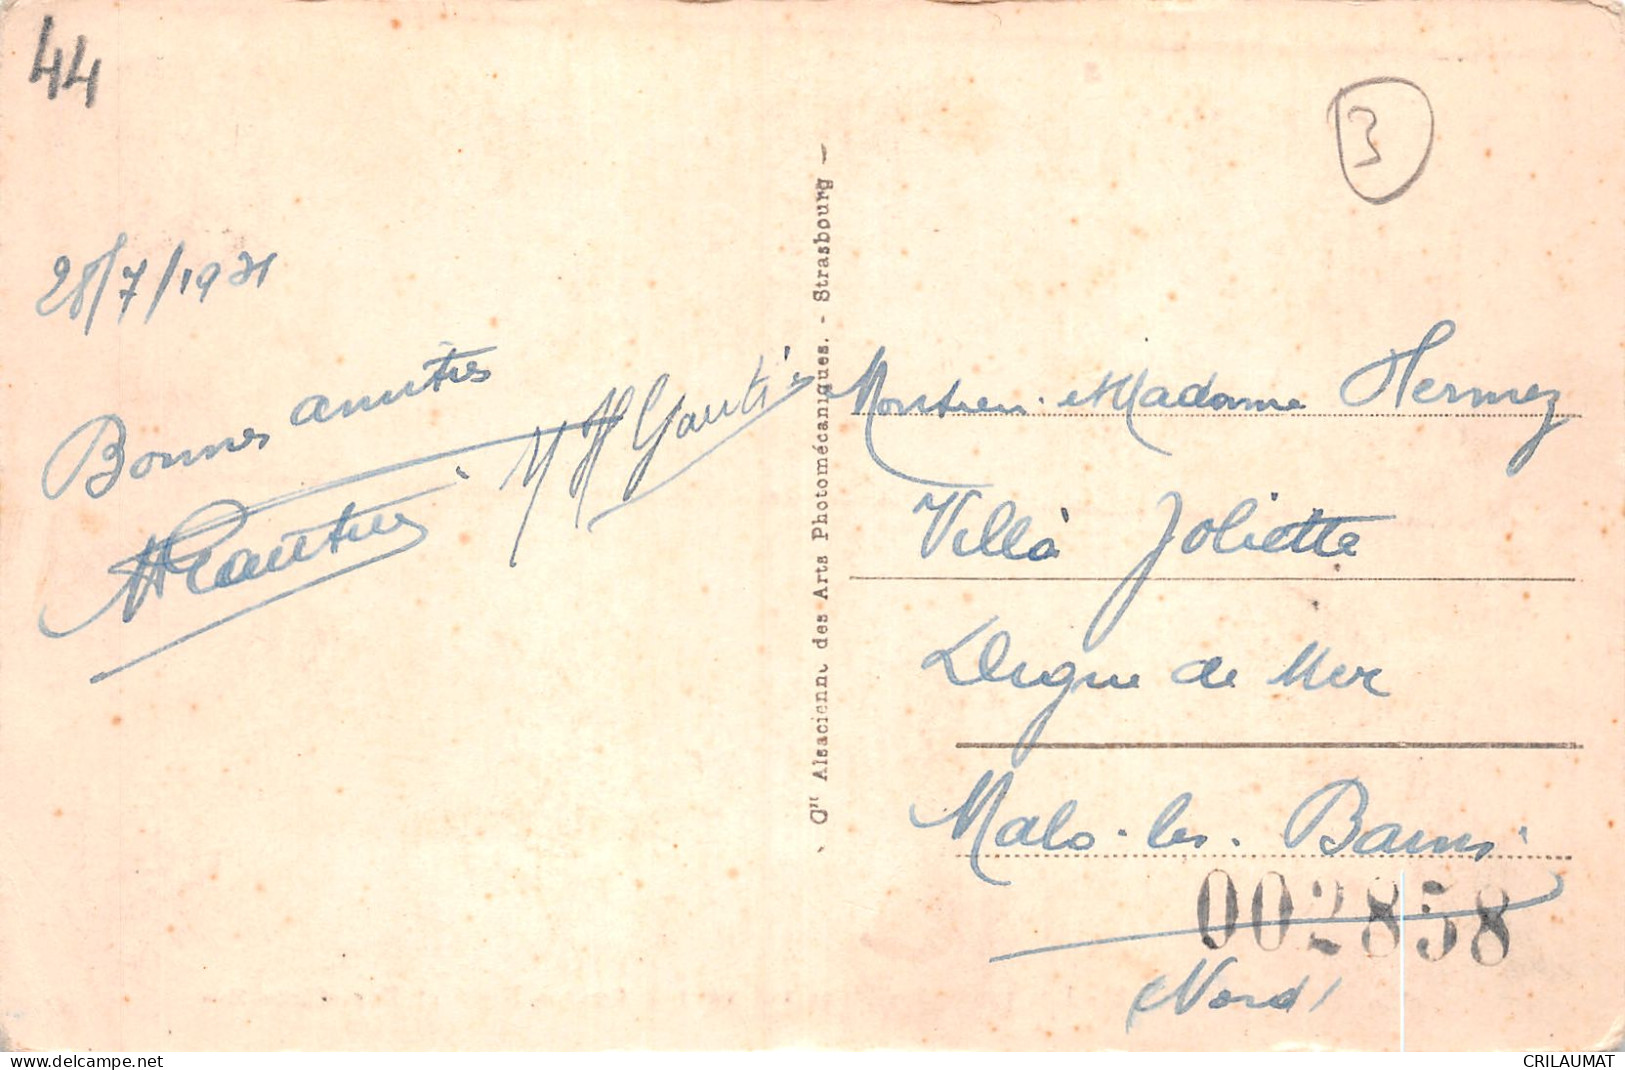 44
3
28/7/1931
Bonnes amitiés
HGautier
M H Gautier
Cie Alsacienne des Arts Photomécaniques. - Strasbourg -
Monsieur et Madame Hermez
Villa Joliette
Digue de Mer
Malo-les-Bains
002858
(Nord)
www.delcampe.net
CRILAUMAT